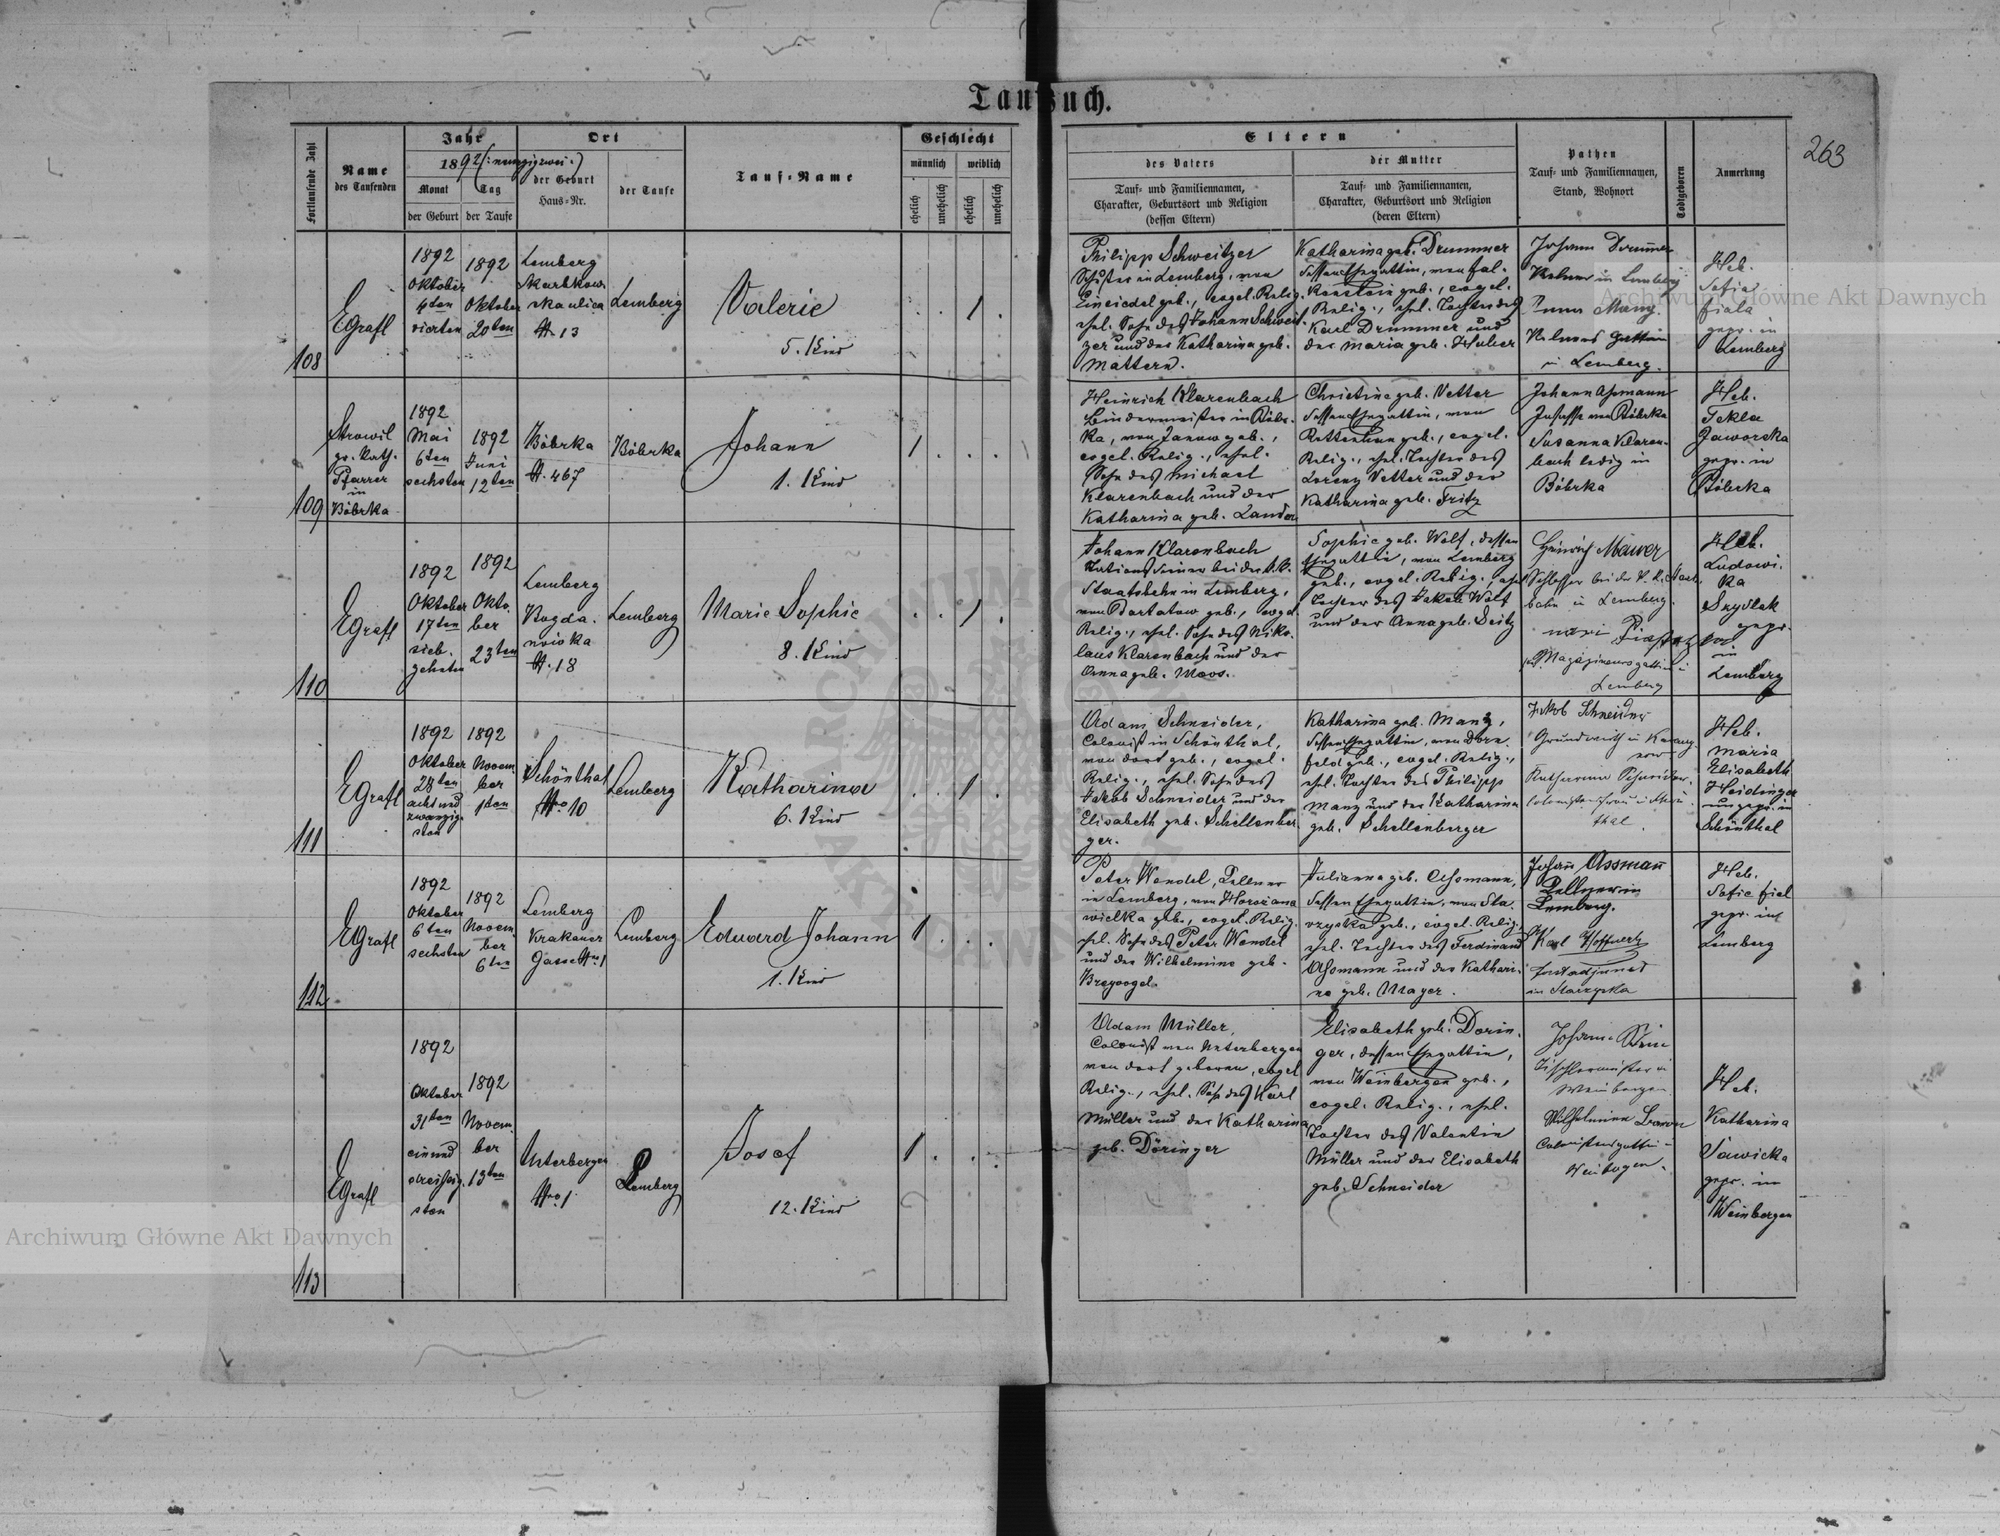 Taufbuch.
263
Fortlaufende Zahl
Name
des Taufenden
Jahr
1892 (: neunzigzwei :)
Monat
Tag
der Geburt
der Taufe
Ort
der Geburt
Haus-Nr.
der Taufe
Tauf-Name
Geschlecht
männlich
weiblich
ehelich
unehelich
ehelich
unehelich
Eltern
des Vaters
Tauf- und Familiennamen,
Charakter, Geburtsort und Religion
(dessen Eltern)
der Mutter
Tauf- und Familiennamen,
Charakter, Geburtsort und Religion
(deren Eltern)
Pathen
Tauf- und Familiennamen,
Stand, Wohnort
Todtgeboren
Anmerkung
108
EGrafl
1892
Oktober
4ten
vierten
1892
Oktober
20ten
Lemberg
Skarbkow.
ska ulica
N. 13
Lemberg
Valerie
5. Kind
1
Philipp Schweitzer
Schuster in Lemberg, von
Einsiedel geb., evgel. Relig.
ehel. Sohn des Johann Schweit
zer und der Katharina geb.
Mattern.
Katharina geb. Drummer
dessen Ehegattin, von Fal-
kenstein geb., evgel.
Relig., ehel. Tochter des
Karl Drummer und
der Maria geb. Huber
Johann Drummer
Kelner in Lemberg
Manz.
Kelners Gattin
in Lemberg.
Heb.
Sofia
Fiala
gepr. in
Lemberg
109
Strowil
gr. Kath.
Pfarrer
in
Bóbrka
1892
Mai
6ten
sechsten
1892
Juni
12ten
Bóbrka
N. 467
Bóbrka
Johann
1. Kind
1
Heinrich Klarenbach
Bindermeister in Bóbr-
ka, von Janow geb.,
evgel. Relig., ehel.
Sohn des Michael
Klarenbach und der
Katharina geb. Lander
Christine geb. Vetter
dessen Ehegattin, von
Rottenhan geb., evgel.
Relig., ehel. Tochter des
Lorenz Vetter und der
Katharina geb. Fritz
Johann Assmann
Insasse von Bóbrka
Susanna Klaren-
bach ledig in
Bóbrka
Heb.
Tekla
Jaworska
gepr. in
Bóbrka
110
EGrafl
1892
Oktober
17ten
sieb-
zehnten
1892
Okto-
ber
23ten
Lemberg
Bogda-
nowska
N. 18
Lemberg
Marie Sophie
8. Kind
1
Johann Klarenbach
Stationsdiener bei der k.k.
Staatsbahn in Lemberg,
von Bartatow geb., evgel.
Relig., ehel. Sohn des Niko-
laus Klarenbach und der
Anna geb. Moos.
Sophie geb. Wolf, dessen
Ehegattin, von Lemberg
geb., evgel. Relig., ehel
Tochter des Jakob Wolf
und der Anna geb. Deitz
Heinrich Maurer
Schlosser bei der k. k. Staats
bahn in Lemberg.
Magazineursgattin in
Lemberg
Heb.
Ludowi-
ka
gepr.
in
Lemberg
111
EGrafl
1892
Oktober
28ten
acht und
zwanzig-
sten
1892
Novem-
ber
1ten
Schönthal
No 10
Lemberg
Katharina
6. Kind
1
Adam Schneider,
Colonist in Schönthal,
von dort geb., evgel.
Relig., ehel. Sohn des
Jakob Schneider und der
Elisabeth geb. Schellenber-
ger.
Katharina geb. Manz,
dessen Ehegattin, von Dorn-
feld geb., evgel. Relig.,
ehel. Tochter des Philipp
Manz und der Katharina
geb. Schellenberger
Jakob Schneider
Grundwirth in
Katharina Schneider
Colonistensfrau in Schön-
thal.
Heb.
Maria
Elisabeth
Heidinger
ungepr. in
Schönthal
112
EGrafl
1892
Oktober
6ten
sechsten
1892
Novem-
ber
6ten
Lemberg
Krakauer
Gasse No 1
Lemberg
Eduard Johann
1. Kind
1
Peter Wendel, Kellner
in Lemberg, von Horożana
wielka geb., evgel. Relig.
ehel. Sohn des Peter Wendel
und der Wilhelmine geb.
Breyvogel
Julianna geb. Assmann,
dessen Ehegattin, von Sta-
rzyska geb., evgel. Relig.
ehel. Tochter des Ferdinand
Assmann und der Kathari-
na geb. Mayer.
Johann Assmann
Kellner in
Lemberg.
Karl
Forstadjunct
in Starzyska
Heb.
Sofie Fial
gepr. in
Lemberg
113
EGrafl
1892
Oktober
31ten
ein und
dreissig-
sten
1892
Novem-
ber
13ten
Unterbergen
No 1
Lemberg
Josef
12. Kind
1
Adam Müller,
Colonist von Unterbergen
von dort geboren, evgel
Relig., ehel. Sohn des Karl
Müller und der Katharina
geb. Döringer
Elisabeth geb. Dorin-
ger, dessen Ehegattin,
von Weinbergen geb.,
evgel. Relig., ehel.
Tochter des Valentin
Müller und der Elisabeth
geb. Schneider
Johann
Tischlermeister in
Weinbergen
Wilhelmine
Colonistensgattin
Weinbergen.
Heb.
Katharina
Sawicka
gepr. in
Weinbergen
Archiwum Główne Akt Dawnych
Archiwum Główne Akt Dawnych